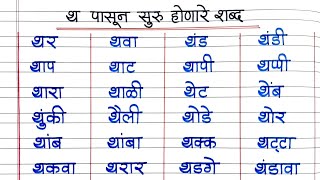 थ पासून सुरु होणारे शब्द
थर थवा थंड थंडी
थाप थाट थापी थप्पी
थारा थाळी थेट थेंब
थुंकी थैली थोडे थोर
थांब थांबा थक्क थट्टा
थकवा थरार थडगे थंडावा